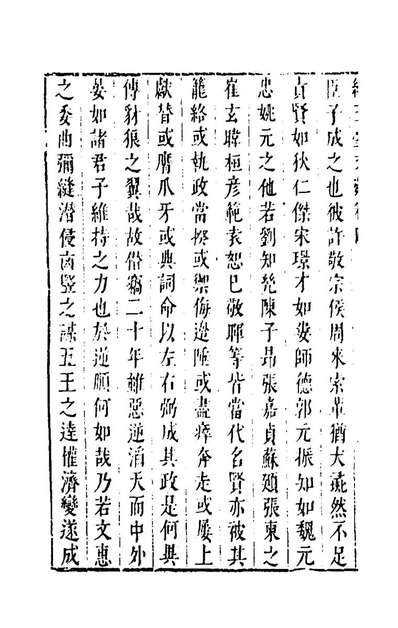 臣子成之也彼許敬宗侯周來索輩猶犬彘然不足
責賢如狄仁傑宋璟才如婁師德郭元振知如魏元
忠姚元之他若劉知幾陳子昂張嘉貞蘇頲張柬之
崔玄暐桓彦範袁恕已敬暉等皆當代名賢亦被其
籠絡或執政當揆或禦侮邉陲或盡瘁奔走或屢上
獻替或膺爪牙或典詞命以左右弼成其政是何異
傅豺狼之翼哉故僭竊二十年雖惡逆滔天而中外
晏如諸君子維持之力也於逆順何如哉乃若文惠
之委曲彌縫潛侵鹵豎之謀五王之達權濟變遂成